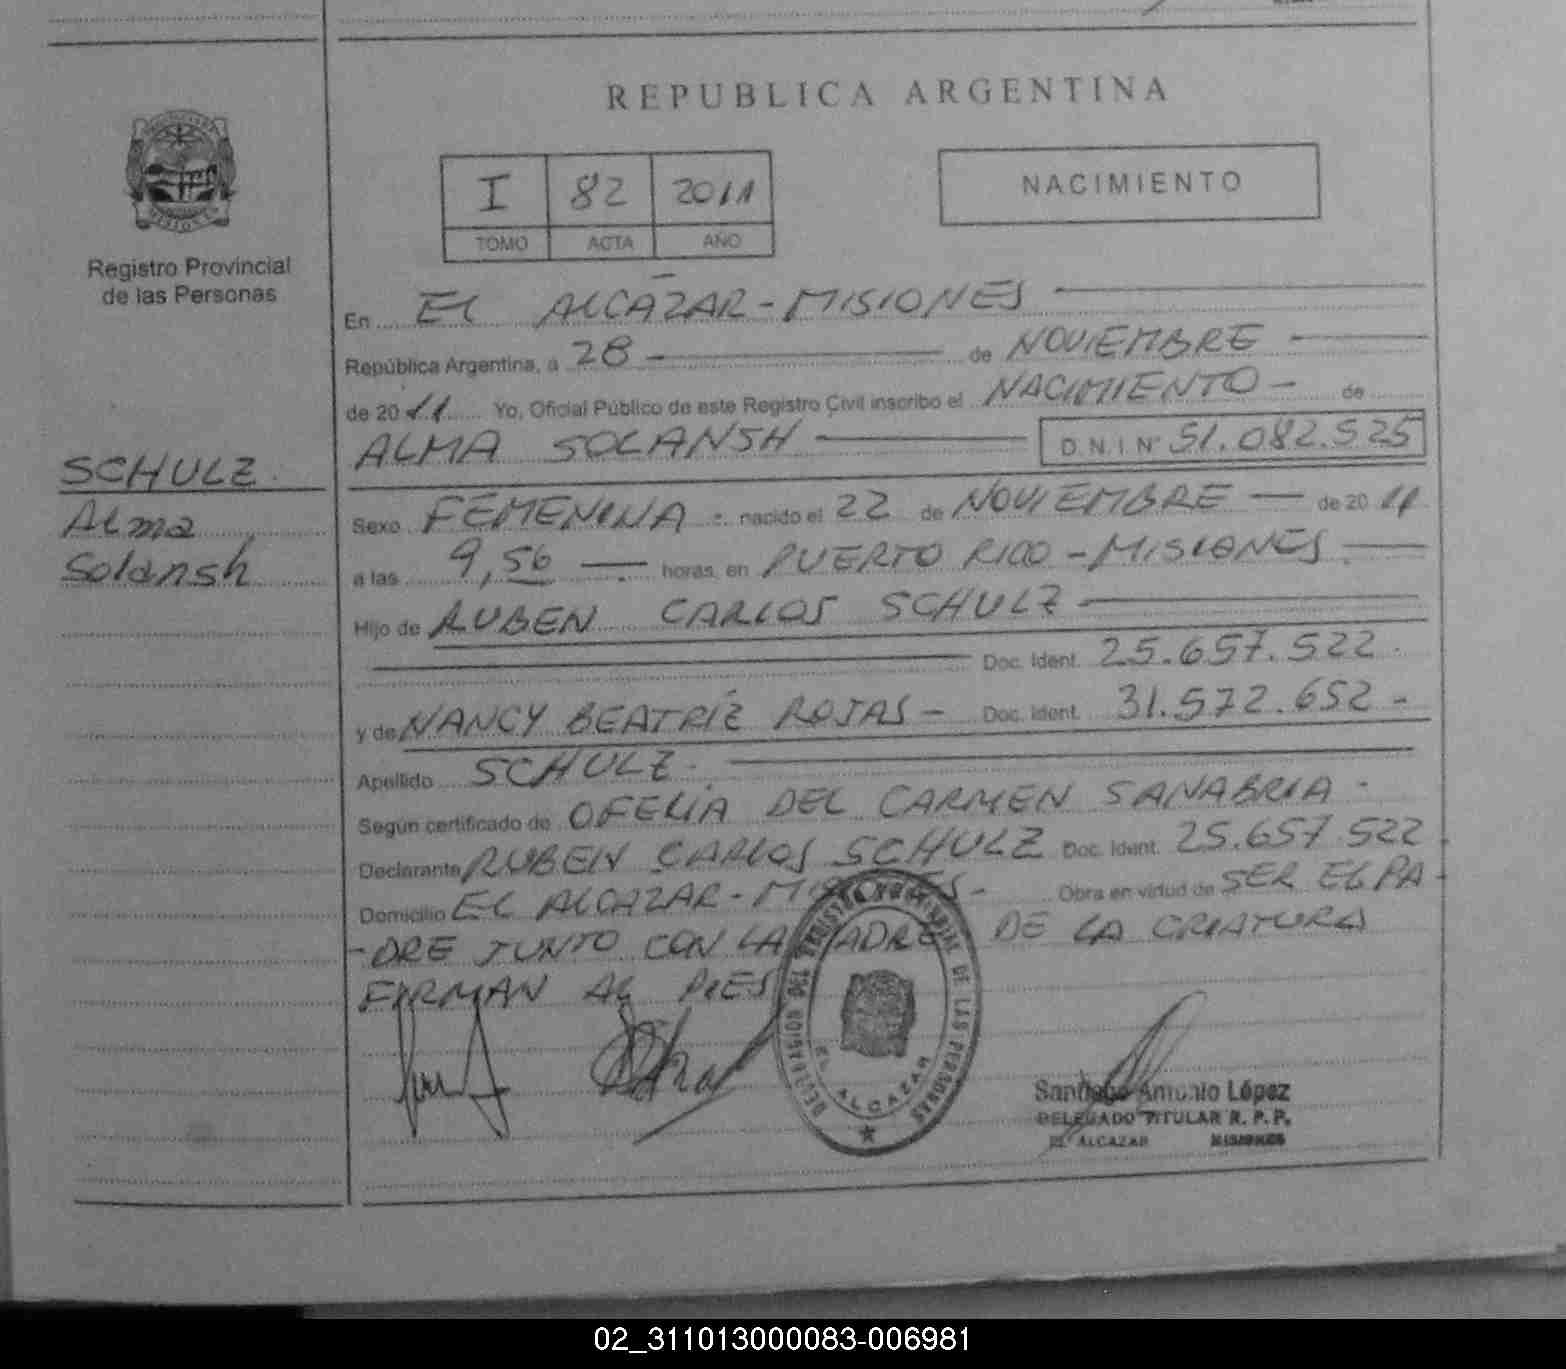 REPUBLICA ARGENTINA
I 82 2011
TOMO ACTA AÑO
NACIMIENTO
Registro Provincial
de las Personas
SCHULZ.
Alma
Solansh
En EL ALCAZAR - MISIONES
República Argentina, a 28 - de NOVIEMBRE
de 2011 Yo, Oficial Público de este Registro Civil inscribo el NACIMIENTO - de
ALMA SOLANSH D.N.I. Nº 51.082.525
Sexo FEMENINA - nacido el 22 de NOVIEMBRE - de 2011
a las 9,56 horas, en PUERTO RICO - MISIONES
Hijo de RUBEN CARLOS SCHULZ
Doc. Ident. 25.657.522
y de NANCY BEATRIZ ROJAS - Doc. Ident. 31.572.652 -
Apellido SCHULZ.
Según certificado de OFELIA DEL CARMEN SANABRIA -
Declarante RUBEN CARLOS SCHULZ Doc. Ident. 25.657.522
Domicilio EL ALCAZAR - MISIONES - Obra en virtud de SER EL PA-
-DRE JUNTO CON LA MADRE DE LA CRIATURA
FIRMAN AL PIES
DELEGACION DEL REGISTRO PROVINCIAL DE LAS PERSONAS
EL ALCAZAR
Santiago Antonio López
DELEGADO TITULAR R. P. P.
EL ALCAZAR MISIONES
02_311013000083-006981